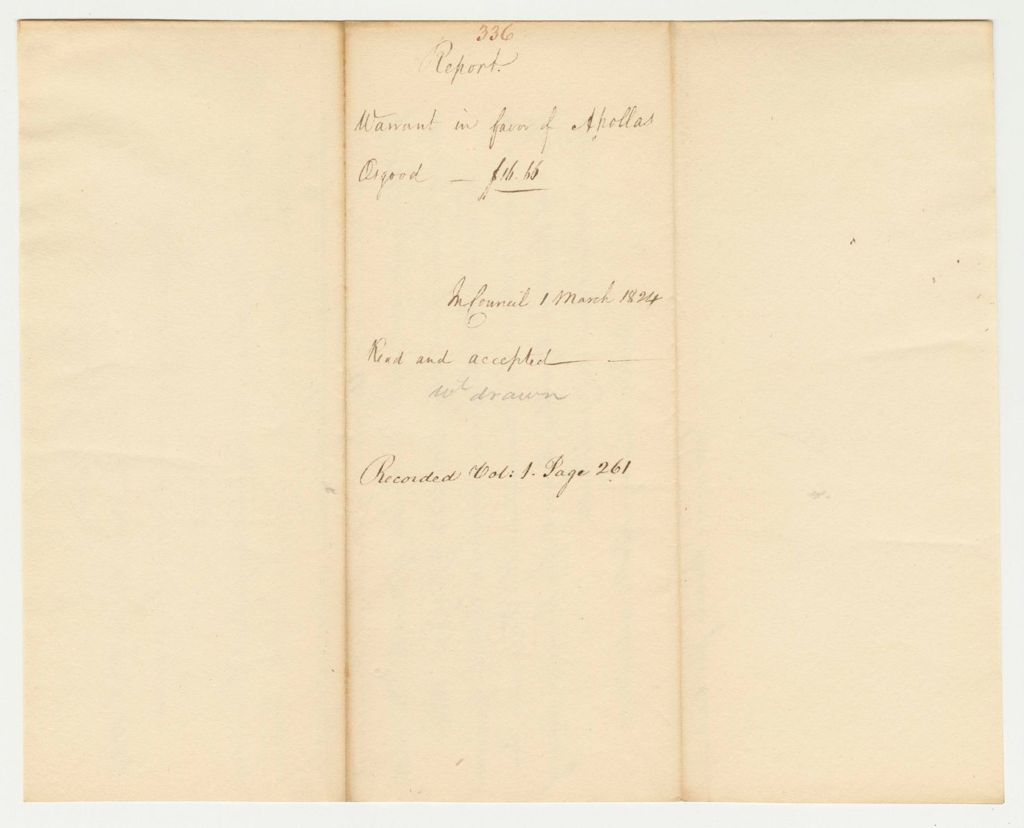 336
Report.
Warrant in favor of Apollas
Osgood — $16.66
In Council 1 March 1824
Read and accepted — —
wt drawn
Recorded Vol: 1. Page 261